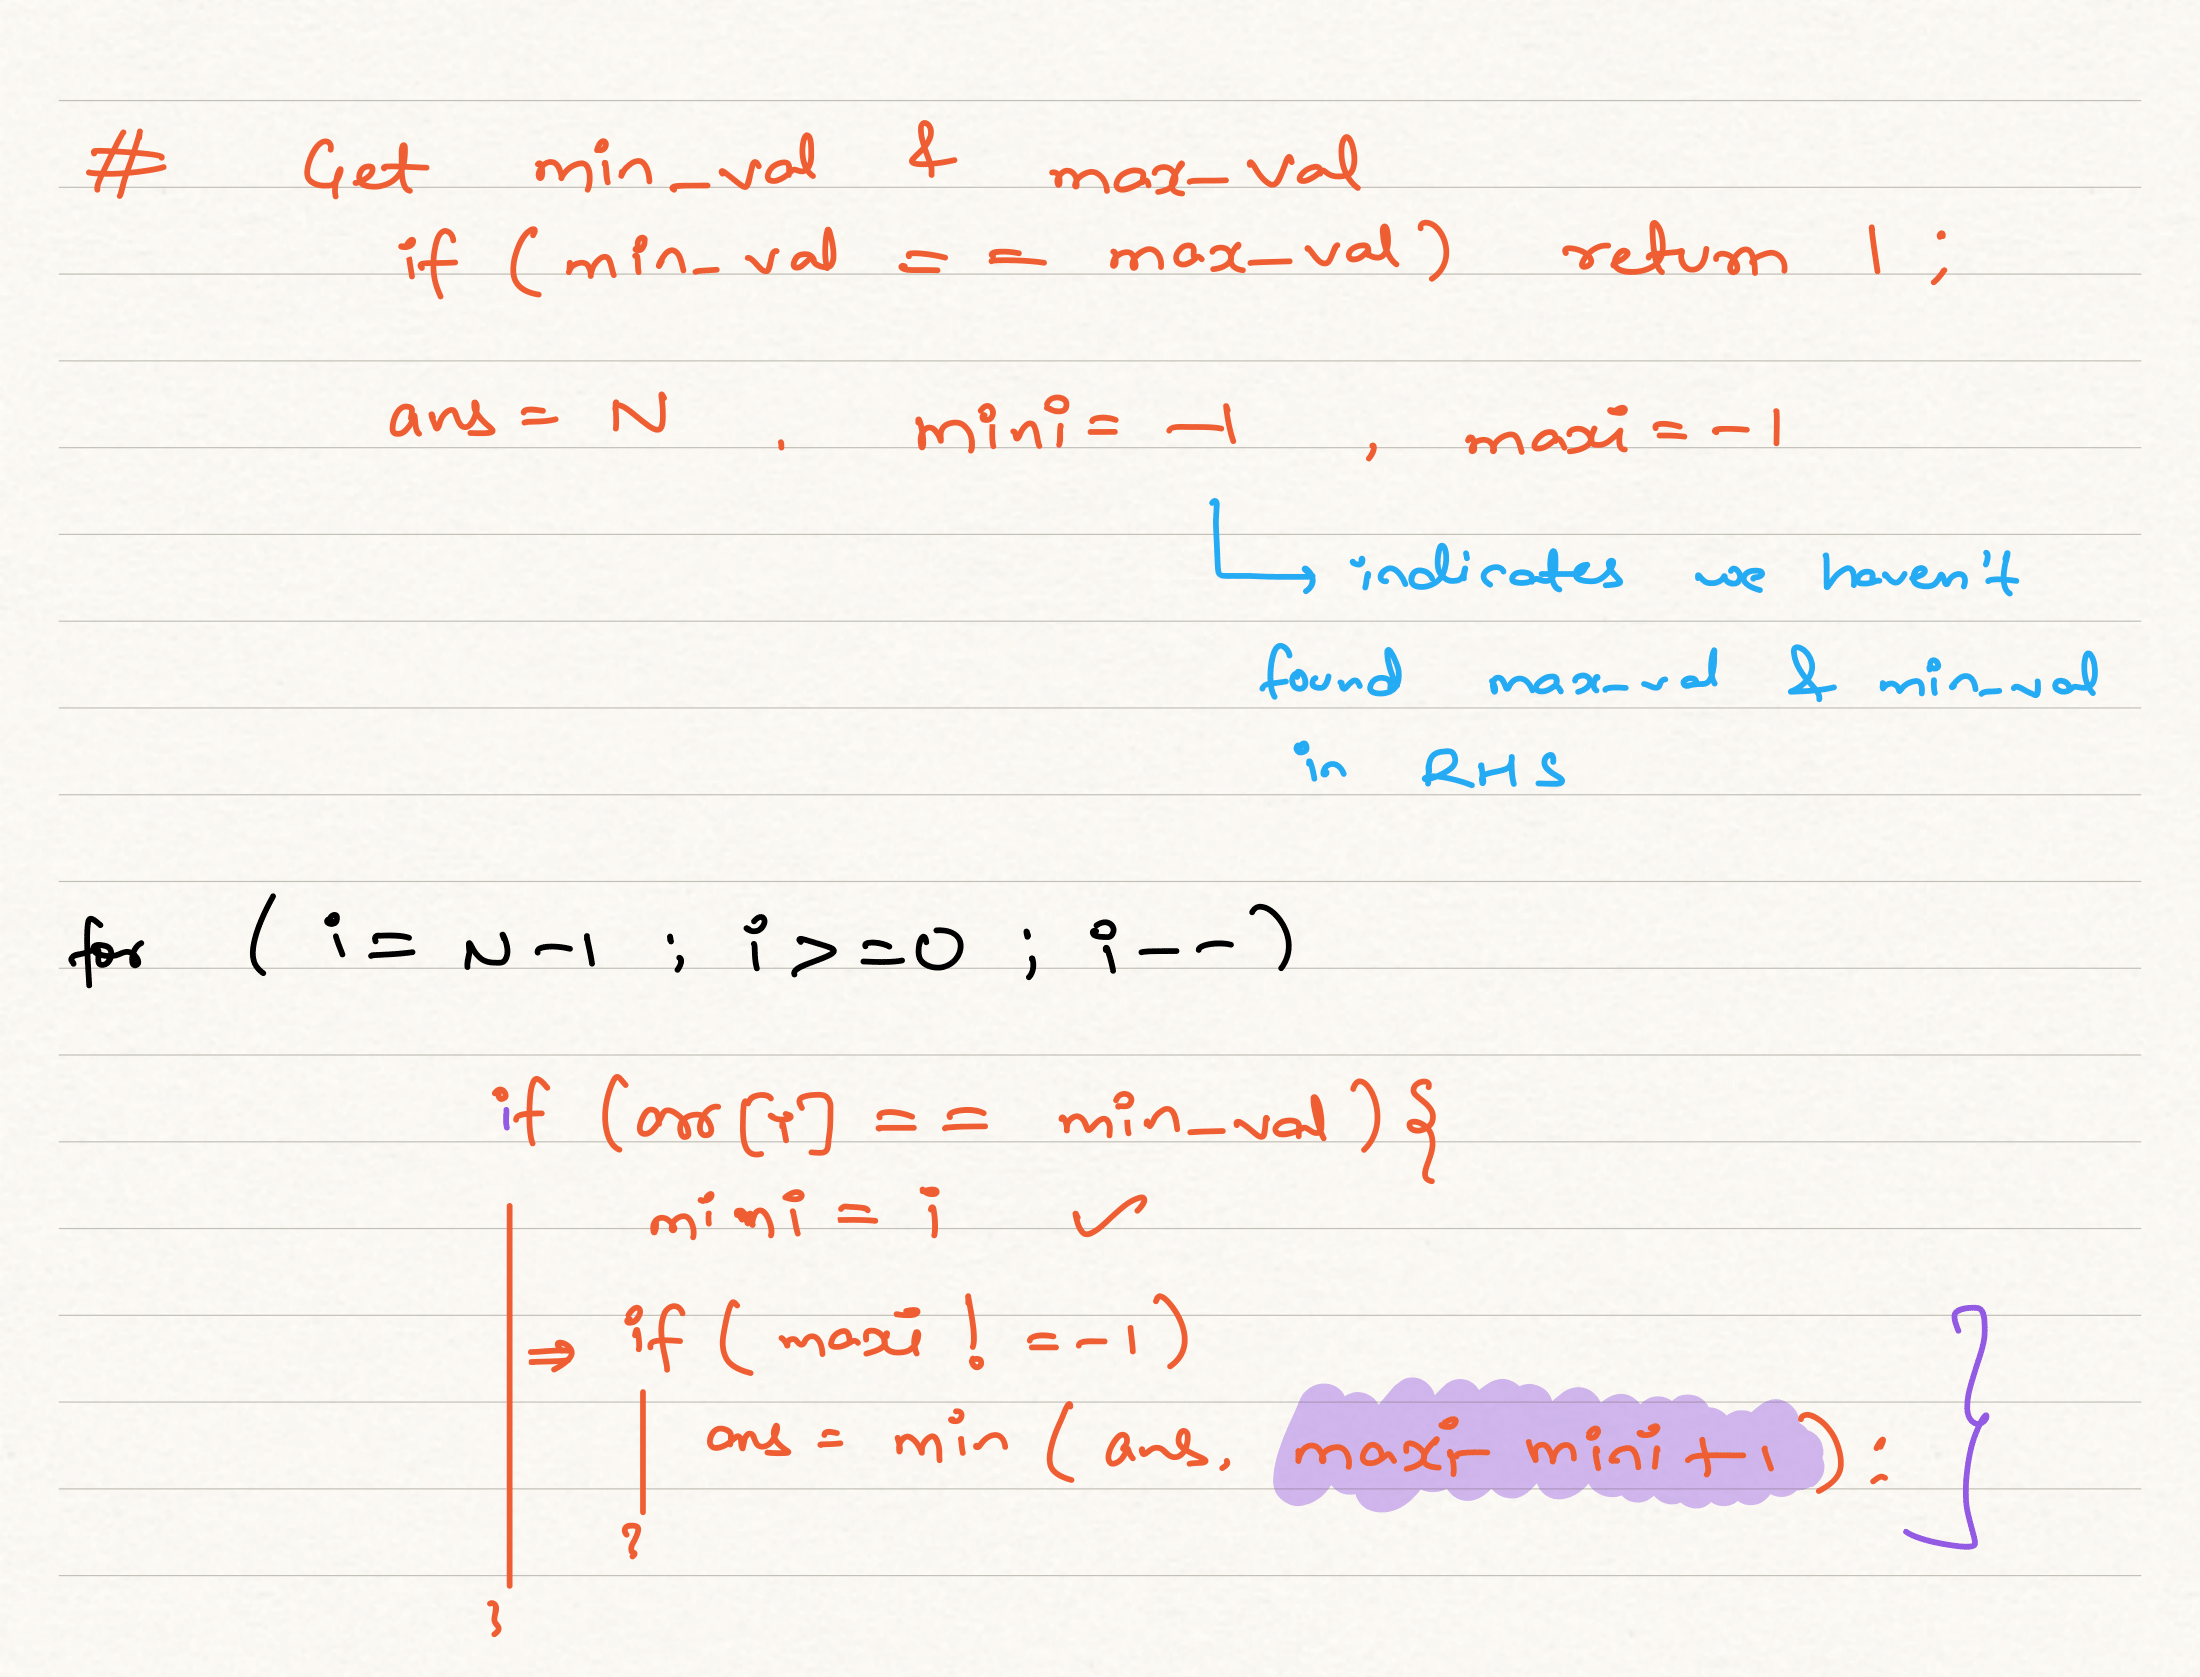 # Get min_val & max_val
if (min_val == max_val) return 1;
ans = N , mini = -1 , maxi = -1
indicates we haven't
found max_val & min_val
in RHS
for ( i = N-1 ; i >= 0 ; i-- )
if (arr[i] == min_val) {
mini = i ✓
⇒ if ( maxi != -1 )
ans = min ( ans, maxi - mini + 1 );
}
}